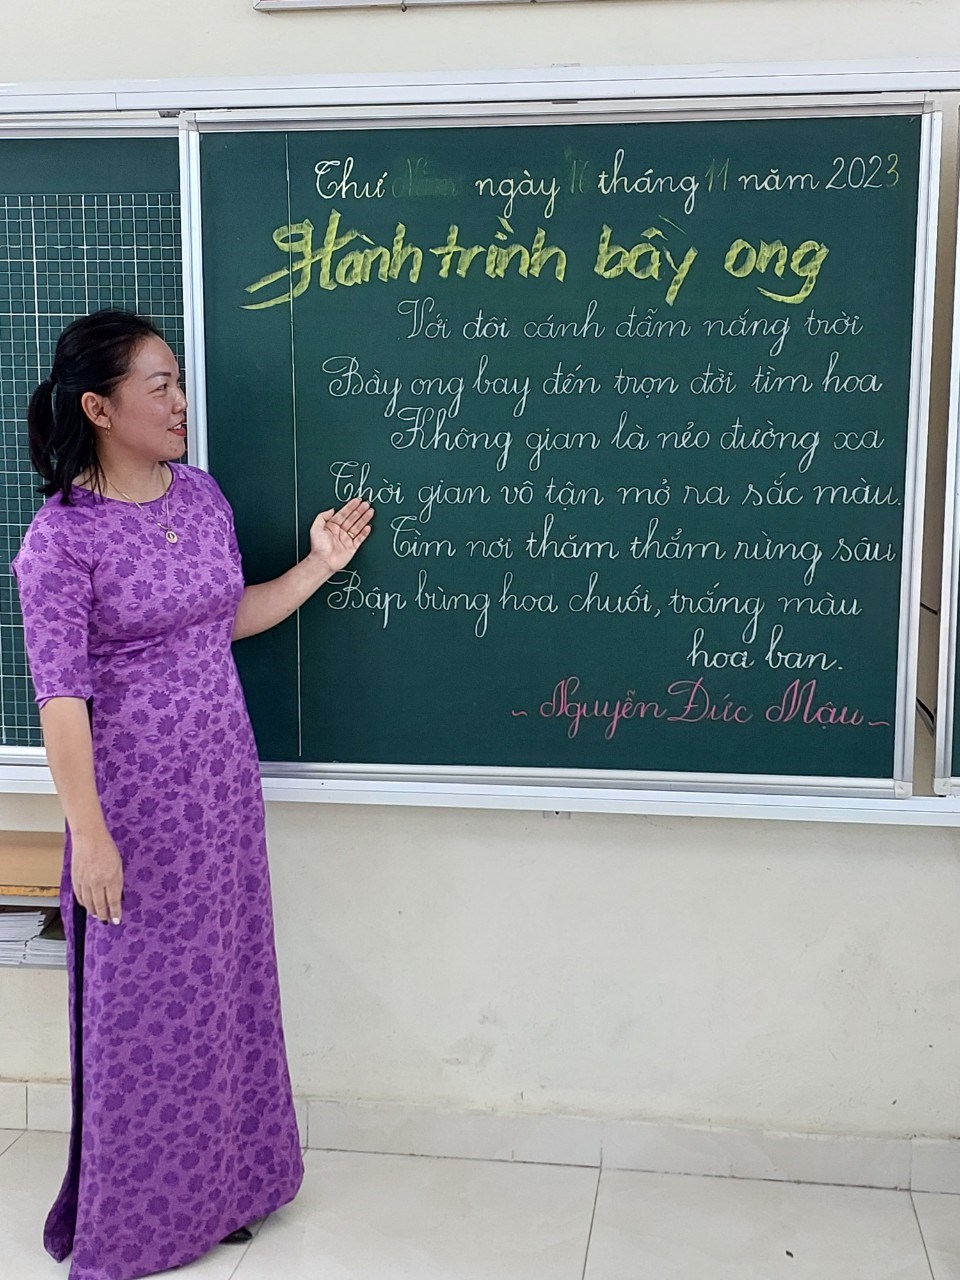 Thứ Năm ngày 16 tháng 11 năm 2023
Hành trình bầy ong
Với đôi cánh đẫm nắng trời
Bầy ong bay đến trọn đời tìm hoa
Không gian là nẻo đường xa
Thời gian vô tận mở ra sắc màu.
Tìm nơi thăm thẳm rừng sâu
Bập bùng hoa chuối, trắng màu
hoa ban.
~ Nguyễn Đức Mậu ~